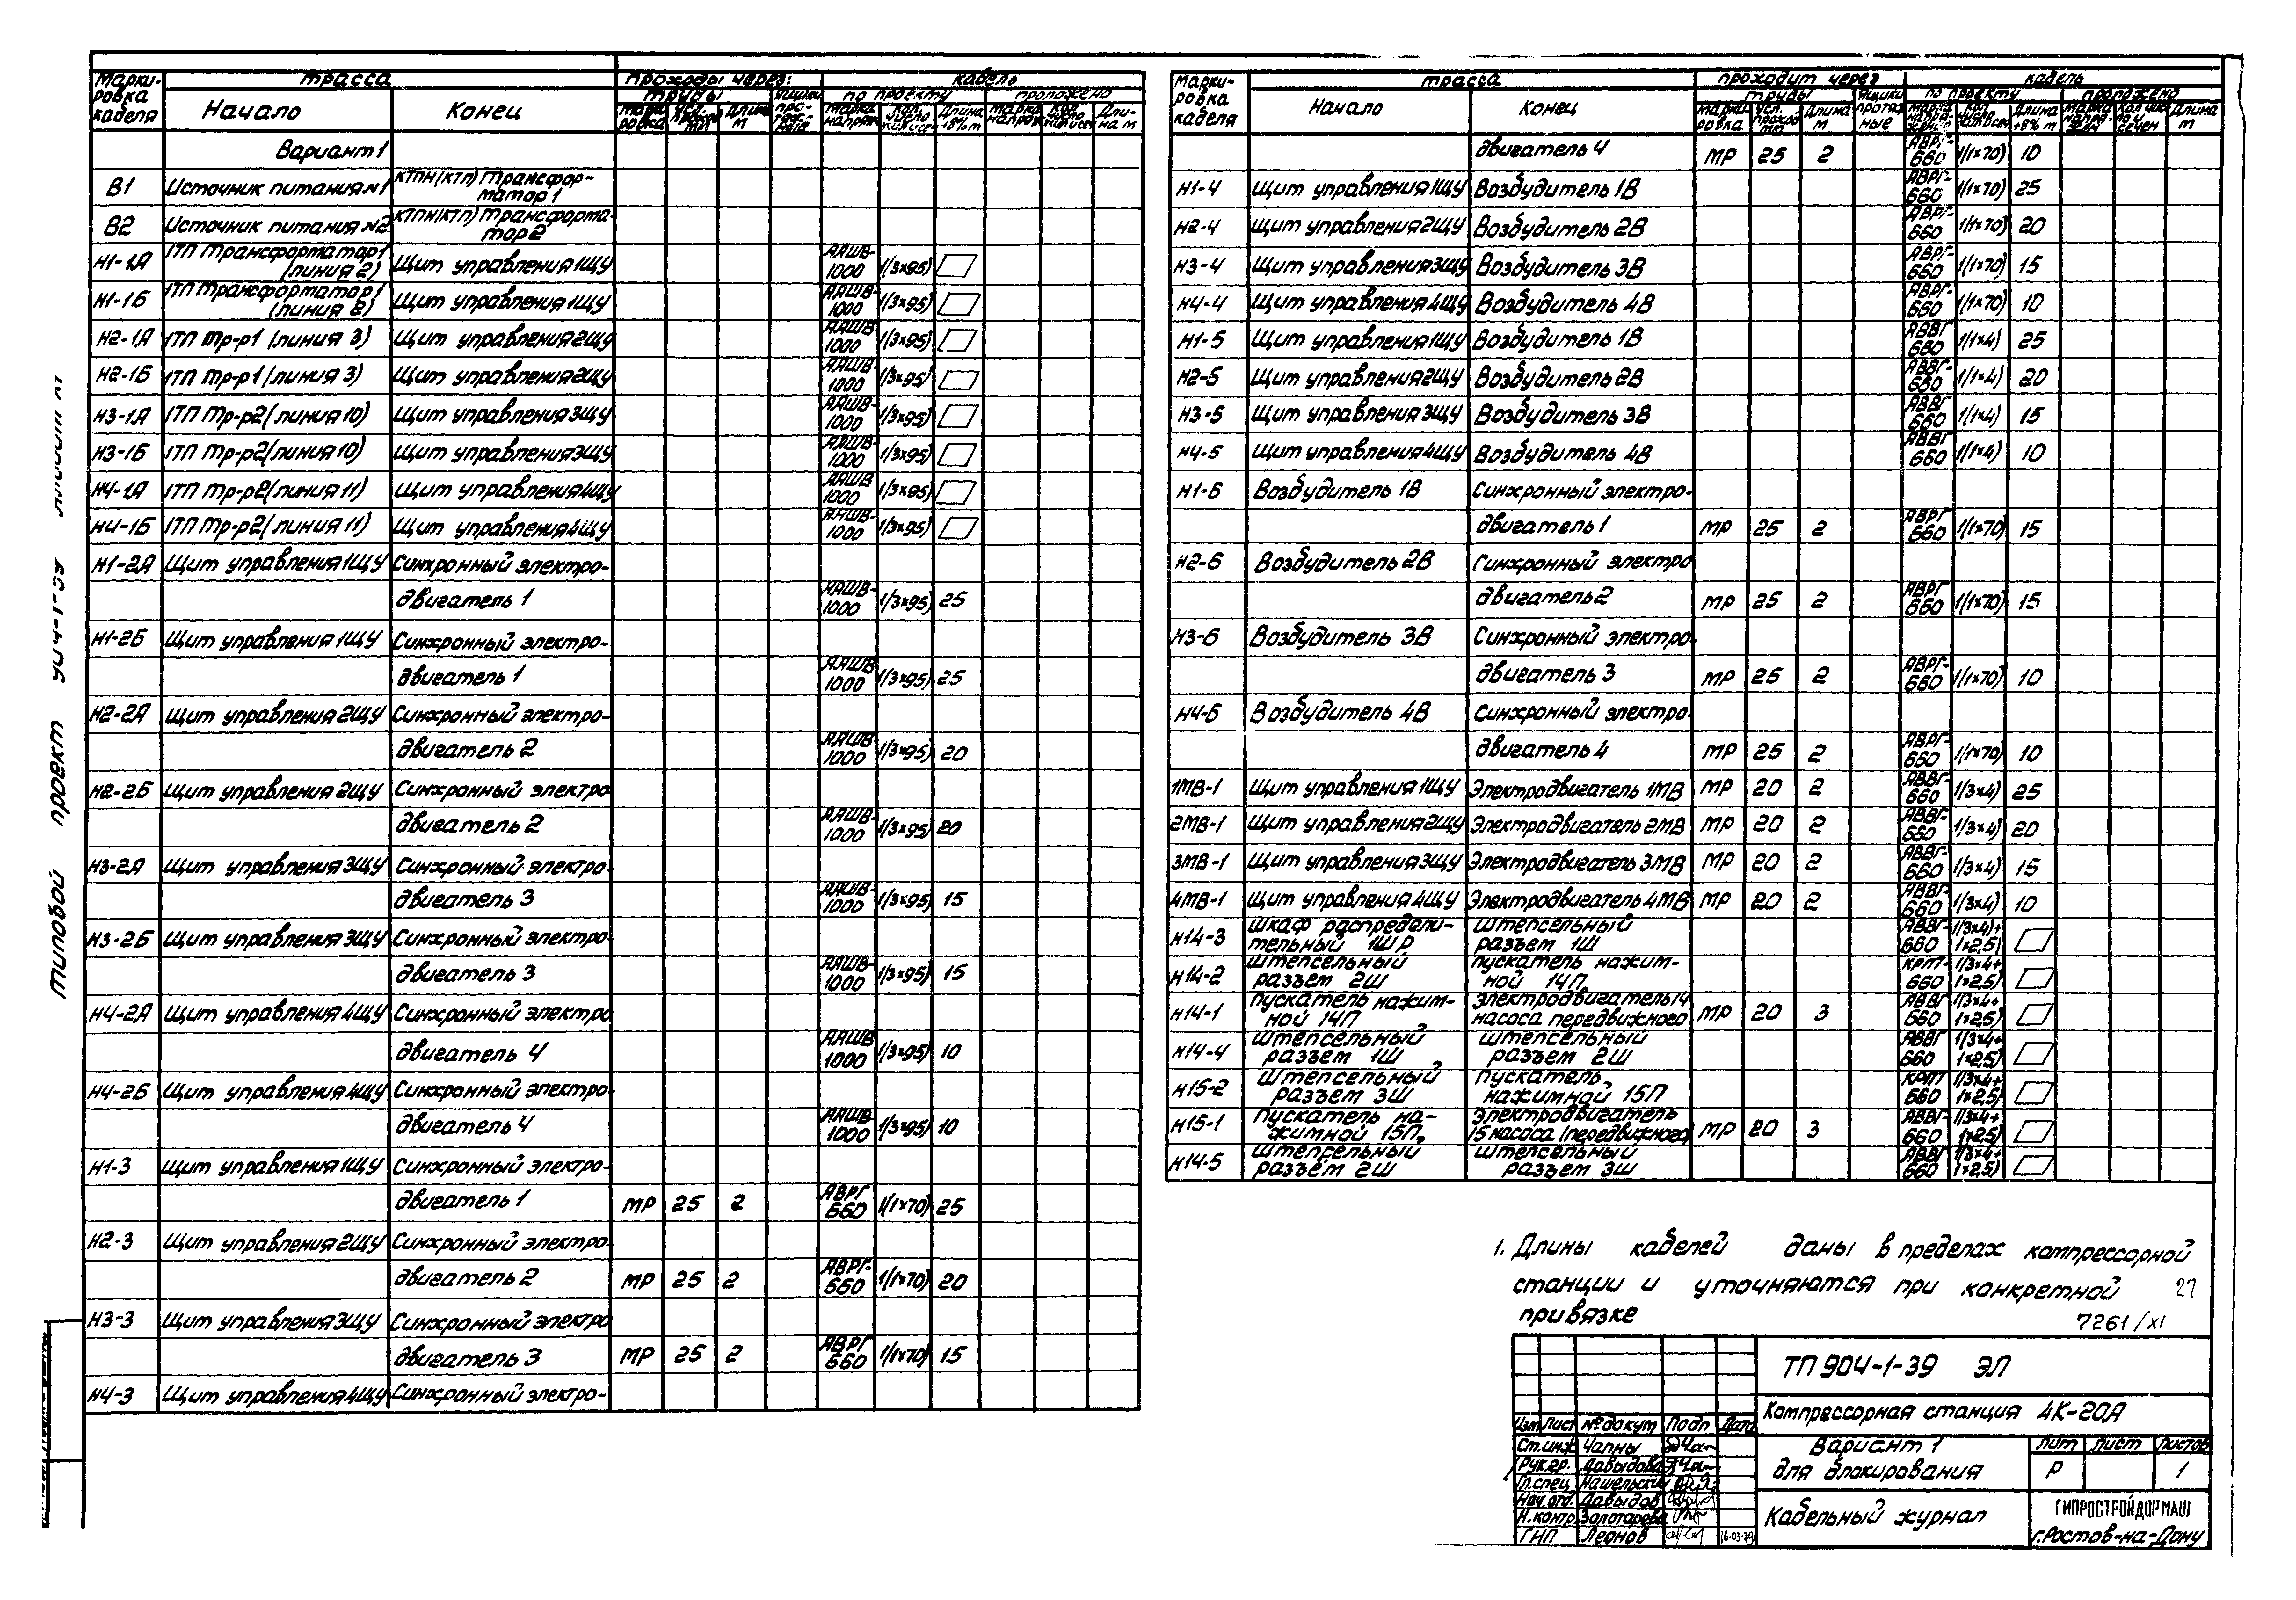 Марки-ровка кабеля | трасса | проходы через: | кабель
Начало | Конец | трубы | по проекту | проложено
Вариант 1
В1 | Источник питания №1 | КТПН(КТП) трансформатор 1
В2 | Источник питания №2 | КТПН(КТП) трансформатор 2
Н1-1А | 1ТП Трансформатор 1 (линия 2) | Щит управления 1ЩУ | ААШВ-1000 | 1(3×95)
Н1-1Б | 1ТП Трансформатор 1 (линия 2) | Щит управления 1ЩУ | ААШВ-1000 | 1(3×95)
Н2-1А | 1ТП Тр-р1 (линия 3) | Щит управления 2ЩУ | ААШВ-1000 | 1(3×95)
Н2-1Б | 1ТП Тр-р1 (линия 3) | Щит управления 2ЩУ | ААШВ-1000 | 1(3×95)
Н3-1А | 1ТП Тр-р2 (линия 10) | Щит управления 3ЩУ | ААШВ-1000 | 1(3×95)
Н3-1Б | 1ТП Тр-р2 (линия 10) | Щит управления 3ЩУ | ААШВ-1000 | 1(3×95)
Н4-1А | 1ТП Тр-р2 (линия 11) | Щит управления 4ЩУ | ААШВ-1000 | 1(3×95)
Н4-1Б | 1ТП Тр-р2 (линия 11) | Щит управления 4ЩУ | ААШВ-1000 | 1(3×95)
Н1-2А | Щит управления 1ЩУ | Синхронный электро-
двигатель 1 | ААШВ-1000 | 1(3×95) | 25
Н1-2Б | Щит управления 1ЩУ | Синхронный электро-
двигатель 1 | ААШВ-1000 | 1(3×95) | 25
Н2-2А | Щит управления 2ЩУ | Синхронный электро-
двигатель 2 | ААШВ-1000 | 1(3×95) | 20
Н2-2Б | Щит управления 2ЩУ | Синхронный электро-
двигатель 2 | ААШВ-1000 | 1(3×95) | 20
Н3-2А | Щит управления 3ЩУ | Синхронный электро-
двигатель 3 | ААШВ-1000 | 1(3×95) | 15
Н3-2Б | Щит управления 3ЩУ | Синхронный электро-
двигатель 3 | ААШВ-1000 | 1(3×95) | 15
Н4-2А | Щит управления 4ЩУ | Синхронный электро-
двигатель 4 | ААШВ-1000 | 1(3×95) | 10
Н4-2Б | Щит управления 4ЩУ | Синхронный электро-
двигатель 4 | ААШВ-1000 | 1(3×95) | 10
Н1-3 | Щит управления 1ЩУ | Синхронный электро-
двигатель 1 | МР | 25 | 2 | АВРГ 660 | 1(1×70) | 25
Н2-3 | Щит управления 2ЩУ | Синхронный электро-
двигатель 2 | МР | 25 | 2 | АВРГ-660 | 1(1×70) | 20
Н3-3 | Щит управления 3ЩУ | Синхронный электро
двигатель 3 | МР | 25 | 2 | АВРГ 660 | 1(1×70) | 15
Н4-3 | Щит управления 4ЩУ | Синхронный электро-
Марки-ровка кабеля | трасса | проходит через | кабель
Начало | Конец | трубы | ящики протяжные | по проекту | проложено
двигатель 4 | МР | 25 | 2 | АВРГ-660 | 1(1×70) | 10
Н1-4 | Щит управления 1ЩУ | Возбудитель 1В | АВРГ-660 | 1(1×70) | 25
Н2-4 | Щит управления 2ЩУ | Возбудитель 2В | АВРГ-660 | 1(1×70) | 20
Н3-4 | Щит управления 3ЩУ | Возбудитель 3В | АВРГ-660 | 1(1×70) | 15
Н4-4 | Щит управления 4ЩУ | Возбудитель 4В | АВРГ-660 | 1(1×70) | 10
Н1-5 | Щит управления 1ЩУ | Возбудитель 1В | АВВГ 660 | 1(1×4) | 25
Н2-5 | Щит управления 2ЩУ | Возбудитель 2В | АВВГ-660 | 1(1×4) | 20
Н3-5 | Щит управления 3ЩУ | Возбудитель 3В | АВВГ 660 | 1(1×4) | 15
Н4-5 | Щит управления 4ЩУ | Возбудитель 4В | АВВГ 660 | 1(1×4) | 10
Н1-6 | Возбудитель 1В | Синхронный электро-
двигатель 1 | МР | 25 | 2 | АВРГ 660 | 1(1×70) | 15
Н2-6 | Возбудитель 2В | Синхронный электро
двигатель 2 | МР | 25 | 2 | АВРГ 660 | 1(1×70) | 15
Н3-6 | Возбудитель 3В | Синхронный электро-
двигатель 3 | МР | 25 | 2 | АВРГ-660 | 1(1×70) | 10
Н4-6 | Возбудитель 4В | Синхронный электро-
двигатель 4 | МР | 25 | 2 | АВРГ-660 | 1(1×70) | 10
1МВ-1 | Щит управления 1ЩУ | Электродвигатель 1МВ | МР | 20 | 2 | АВВГ-660 | 1(3×4) | 25
2МВ-1 | Щит управления 2ЩУ | Электродвигатель 2МВ | МР | 20 | 2 | АВВГ-660 | 1(3×4) | 20
3МВ-1 | Щит управления 3ЩУ | Электродвигатель 3МВ | МР | 20 | 2 | АВВГ-660 | 1(3×4) | 15
4МВ-1 | Щит управления 4ЩУ | Электродвигатель 4МВ | МР | 20 | 2 | АВВГ-660 | 1(3×4) | 10
Н14-3 | шкаф распредели-тельный 1ШР | штепсельный разъем 1Ш | АВВГ-660 | 1(3×4)+1×2,5)
Н14-2 | штепсельный разъем 2Ш | пускатель нажим-ной 14П | КРПТ-660 | 1(3×4+1×2,5)
Н14-1 | пускатель нажим-ной 14П | электродвигатель 14 насоса передвижного | МР | 20 | 3 | АВВГ 660 | 1(3×4+1×2,5)
Н14-4 | штепсельный разъем 1Ш | штепсельный разъем 2Ш | АВВГ 660 | 1(3×4+1×2,5)
Н15-2 | штепсельный разъем 3Ш | Пускатель нажимной 15П | КРПТ 660 | 1(3×4+1×2,5)
Н15-1 | Пускатель на-жимной 15П | электродвигатель 15 насоса (передвижного) | МР | 20 | 3 | АВВГ-660 | 1(3×4+1×2,5)
Н14-5 | штепсельный разъём 2Ш | штепсельный разъем 3Ш | АВВГ 660 | 1(3×4+1×2,5)
1. Длины кабелей даны в пределах компрессорной
станции и уточняются при конкретной
привязке
27
7261/XI
ТП 904-1-39 ЭЛ
Компрессорная станция 4К-20А
Изм Лист № докум Подп Дата
Ст.инж Чапны
Рук.гр. Давыдова
Гл.спец Нашельский
Нач.отд. Давыдов
Н.контр. Золотарева
ГИП Леонов 16-03-79
Вариант 1
для блокирования
Лит Лист Листов
Р 1
Кабельный журнал
ГИПРОСТРОЙДОРМАШ
г.Ростов-на-Дону
типовой проект 904-1-39